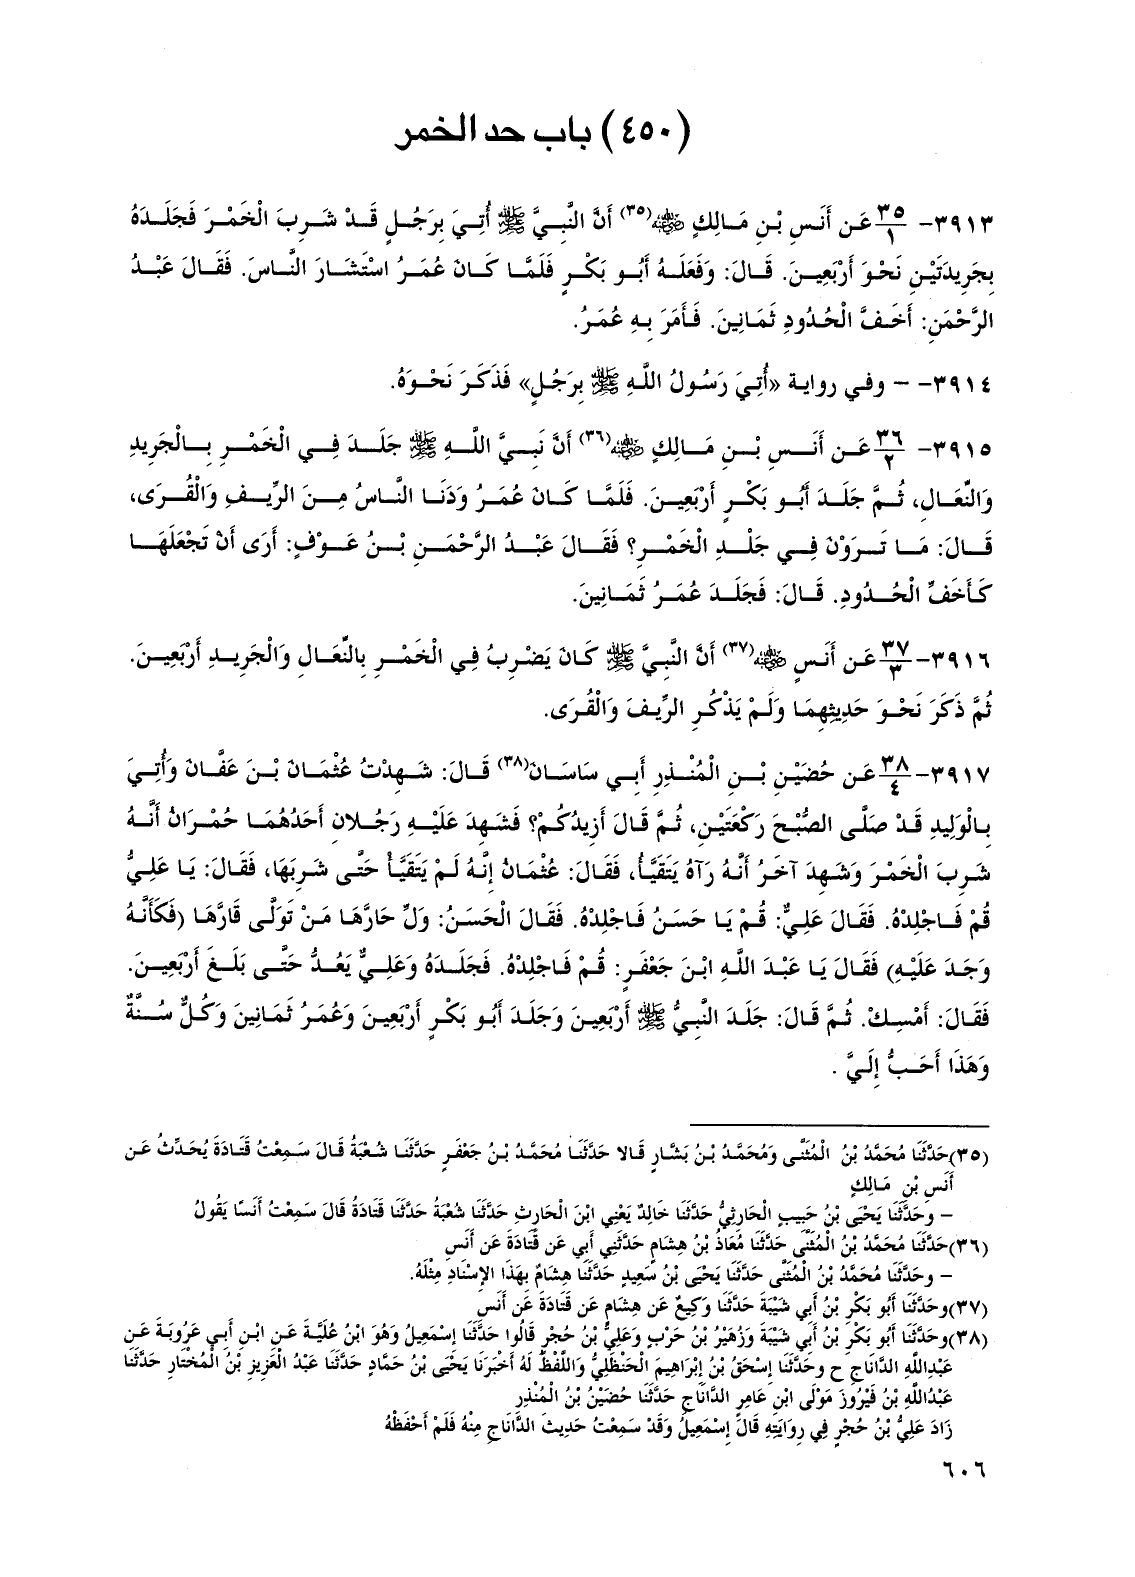 (٤٥٠) باب حد الخمر
٣٩١٣- ٣٥/١ عَن أَنَسِ بْنِ مَالِكٍ ﵁(٣٥) أَنَّ النَّبِيَّ ﷺ أُتِيَ بِرَجُلٍ قَدْ شَرِبَ الْخَمْرَ فَجَلَدَهُ
بِجَرِيدَتَيْنِ نَحْوَ أَرْبَعِينَ. قَالَ: وَفَعَلَهُ أَبُو بَكْرٍ فَلَمَّا كَانَ عُمَرُ اسْتَشَارَ النَّاسَ. فَقَالَ عَبْدُ
الرَّحْمَنِ: أَخَفَّ الْحُدُودِ ثَمَانِينَ. فَأَمَرَ بِهِ عُمَرُ.
٣٩١٤- – وفي رواية «أُتِيَ رَسُولُ اللَّهِ ﷺ بِرَجُلٍ» فَذَكَرَ نَحْوَهُ.
٣٩١٥- ٣٦/٢ عَن أَنَسِ بْنِ مَالِكٍ ﵁(٣٦) أَنَّ نَبِيَّ اللَّهِ ﷺ جَلَدَ فِي الْخَمْرِ بِالْجَرِيدِ
وَالنِّعَالِ، ثُمَّ جَلَدَ أَبُو بَكْرٍ أَرْبَعِينَ. فَلَمَّا كَانَ عُمَرُ وَدَنَا النَّاسُ مِنَ الرِّيفِ وَالْقُرَى،
قَالَ: مَا تَرَوْنَ فِي جَلْدِ الْخَمْرِ؟ فَقَالَ عَبْدُ الرَّحْمَنِ بْنُ عَوْفٍ: أَرَى أَنْ تَجْعَلَهَا
كَأَخَفِّ الْحُدُودِ. قَالَ: فَجَلَدَ عُمَرُ ثَمَانِينَ.
٣٩١٦- ٣٧/٣ عَن أَنَسٍ ﵁(٣٧) أَنَّ النَّبِيَّ ﷺ كَانَ يَضْرِبُ فِي الْخَمْرِ بِالنِّعَالِ وَالْجَرِيدِ أَرْبَعِينَ.
ثُمَّ ذَكَرَ نَحْوَ حَدِيثِهِمَا وَلَمْ يَذْكُرِ الرِّيفَ وَالْقُرَى.
٣٩١٧- ٣٨/٤ عَن حُضَيْنِ بْنِ الْمُنْذِرِ أَبِي سَاسَانَ(٣٨) قَالَ: شَهِدْتُ عُثْمَانَ بْنَ عَفَّانَ وَأُتِيَ
بِالْوَلِيدِ قَدْ صَلَّى الصُّبْحَ رَكْعَتَيْنِ، ثُمَّ قَالَ أَزِيدُكُمْ؟ فَشَهِدَ عَلَيْهِ رَجُلانِ أَحَدُهُمَا حُمْرَانُ أَنَّهُ
شَرِبَ الْخَمْرَ وَشَهِدَ آخَرُ أَنَّهُ رَآهُ يَتَقَيَّأُ، فَقَالَ: عُثْمَانُ إِنَّهُ لَمْ يَتَقَيَّأْ حَتَّى شَرِبَهَا، فَقَالَ: يَا عَلِيُّ
قُمْ فَاجْلِدْهُ. فَقَالَ عَلِيٌّ: قُمْ يَا حَسَنُ فَاجْلِدْهُ. فَقَالَ الْحَسَنُ: وَلِّ حَارَّهَا مَنْ تَوَلَّى قَارَّهَا (فَكَأَنَّهُ
وَجَدَ عَلَيْهِ) فَقَالَ يَا عَبْدَ اللَّهِ ابْنَ جَعْفَرٍ: قُمْ فَاجْلِدْهُ. فَجَلَدَهُ وَعَلِيٌّ يَعُدُّ حَتَّى بَلَغَ أَرْبَعِينَ.
فَقَالَ: أَمْسِكْ. ثُمَّ قَالَ: جَلَدَ النَّبِيُّ ﷺ أَرْبَعِينَ وَجَلَدَ أَبُو بَكْرٍ أَرْبَعِينَ وَعُمَرُ ثَمَانِينَ وَكُلٌّ سُنَّةٌ
وَهَذَا أَحَبُّ إِلَيَّ .
(٣٥)حَدَّثَنَا مُحَمَّدُ بْنُ الْمُثَنَّى وَمُحَمَّدُ بْنُ بَشَّارٍ قَالا حَدَّثَنَا مُحَمَّدُ بْنُ جَعْفَرٍ حَدَّثَنَا شُعْبَةُ قَالَ سَمِعْتُ قَتَادَةَ يُحَدِّثُ عَن
أَنَسِ بْنِ مَالِكٍ
– وحَدَّثَنَا يَحْيَى بْنُ حَبِيبٍ الْحَارِثِيُّ حَدَّثَنَا خَالِدٌ يَعْنِي ابْنَ الْحَارِثِ حَدَّثَنَا شُعْبَةُ حَدَّثَنَا قَتَادَةُ قَالَ سَمِعْتُ أَنَسًا يَقُولُ
(٣٦)حَدَّثَنَا مُحَمَّدُ بْنُ الْمُثَنَّى حَدَّثَنَا مُعَاذُ بْنُ هِشَامٍ حَدَّثَنِي أَبِي عَن قَتَادَةَ عَن أَنَسِ
– وحَدَّثَنَا مُحَمَّدُ بْنُ الْمُثَنَّى حَدَّثَنَا يَحْيَى بْنُ سَعِيدٍ حَدَّثَنَا هِشَامٌ بِهَذَا الإِسْنَادِ مِثْلَهُ.
(٣٧)وحَدَّثَنَا أَبُو بَكْرِ بْنُ أَبِي شَيْبَةَ حَدَّثَنَا وَكِيعٌ عَن هِشَامٍ عَن قَتَادَةَ عَن أَنَسٍ
(٣٨)وحَدَّثَنَا أَبُو بَكْرِ بْنُ أَبِي شَيْبَةَ وَزُهَيْرُ بْنُ حَرْبٍ وَعَلِيُّ بْنُ حُجْرٍ قَالُوا حَدَّثَنَا إِسْمَعِيلُ وَهُوَ ابْنُ عُلَيَّةَ عَن ابْنِ أَبِي عَرُوبَةَ عَن
عَبْدِاللَّهِ الدَّانَاجِ ح وحَدَّثَنَا إِسْحَقُ بْنُ إِبْرَاهِيمَ الْحَنْظَلِيُّ وَاللَّفْظُ لَهُ أَخْبَرَنَا يَحْيَى بْنُ حَمَّادٍ حَدَّثَنَا عَبْدُ الْعَزِيزِ بْنُ الْمُخْتَارِ حَدَّثَنَا
عَبْدُاللَّهِ بْنُ فَيْرُوزَ مَوْلَى ابْنِ عَامِرٍ الدَّانَاجِ حَدَّثَنَا حُضَيْنُ بْنُ الْمُنْذِرِ
زَادَ عَلِيُّ بْنُ حُجْرٍ فِي رِوَايَتِهِ قَالَ إِسْمَعِيلُ وَقَدْ سَمِعْتُ حَدِيثَ الدَّانَاجِ مِنْهُ فَلَمْ أَحْفَظْهُ
٦٠٦